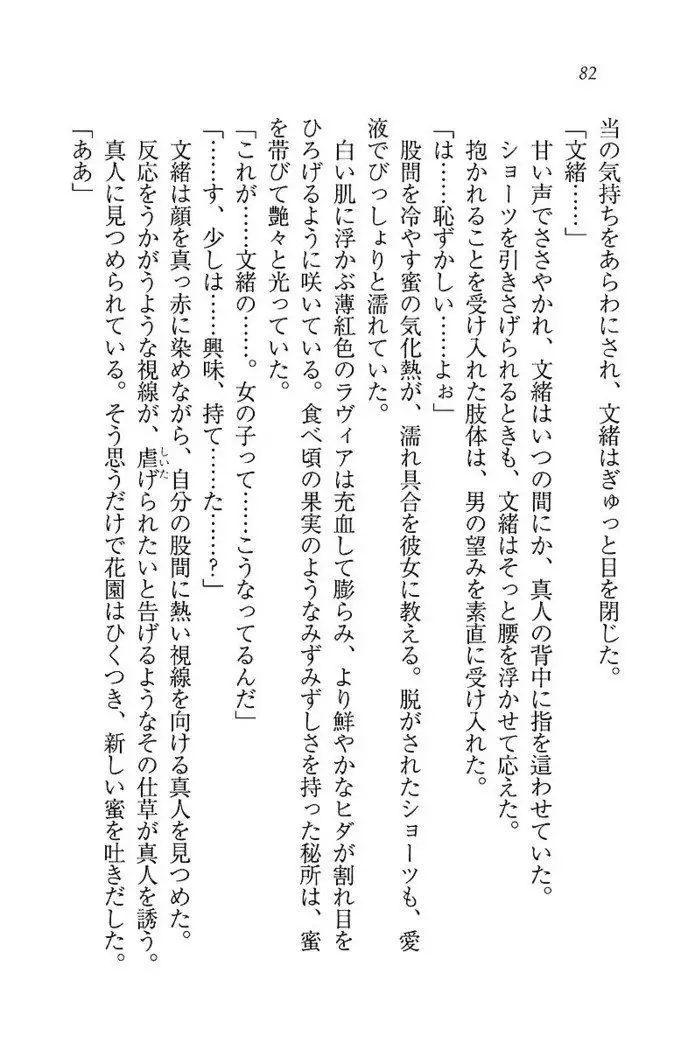 82
当の気持ちをあらわにされ、文緒はぎゅっと目を閉じた。
「文緒……」
甘い声でささやかれ、文緒はいつの間にか、真人の背中に指を這わせていた。
ショーツを引きさげられるときも、文緒はそっと腰を浮かせて応えた。
抱かれることを受け入れた肢体は、男の望みを素直に受け入れた。
「は……恥ずかしい……よぉ」
股間を冷やす蜜の気化熱が、濡れ具合を彼女に教える。脱がされたショーツも、愛
液でびっしょりと濡れていた。
白い肌に浮かぶ薄紅色のラヴィアは充血して膨らみ、より鮮やかなヒダが割れ目を
ひろげるように咲いている。食べ頃の果実のようなみずみずしさを持った秘所は、蜜
を帯びて艶々と光っていた。
「これが……文緒の……。女の子って……こうなってるんだ」
「……す、少しは……興味、持て……た……？」
文緒は顔を真っ赤に染めながら、自分の股間に熱い視線を向ける真人を見つめた。
反応をうかがうような視線が、虐しいたげられたいと告げるようなその仕草が真人を誘う。
真人に見つめられている。そう思うだけで花園はひくつき、新しい蜜を吐きだした。
「ああ」